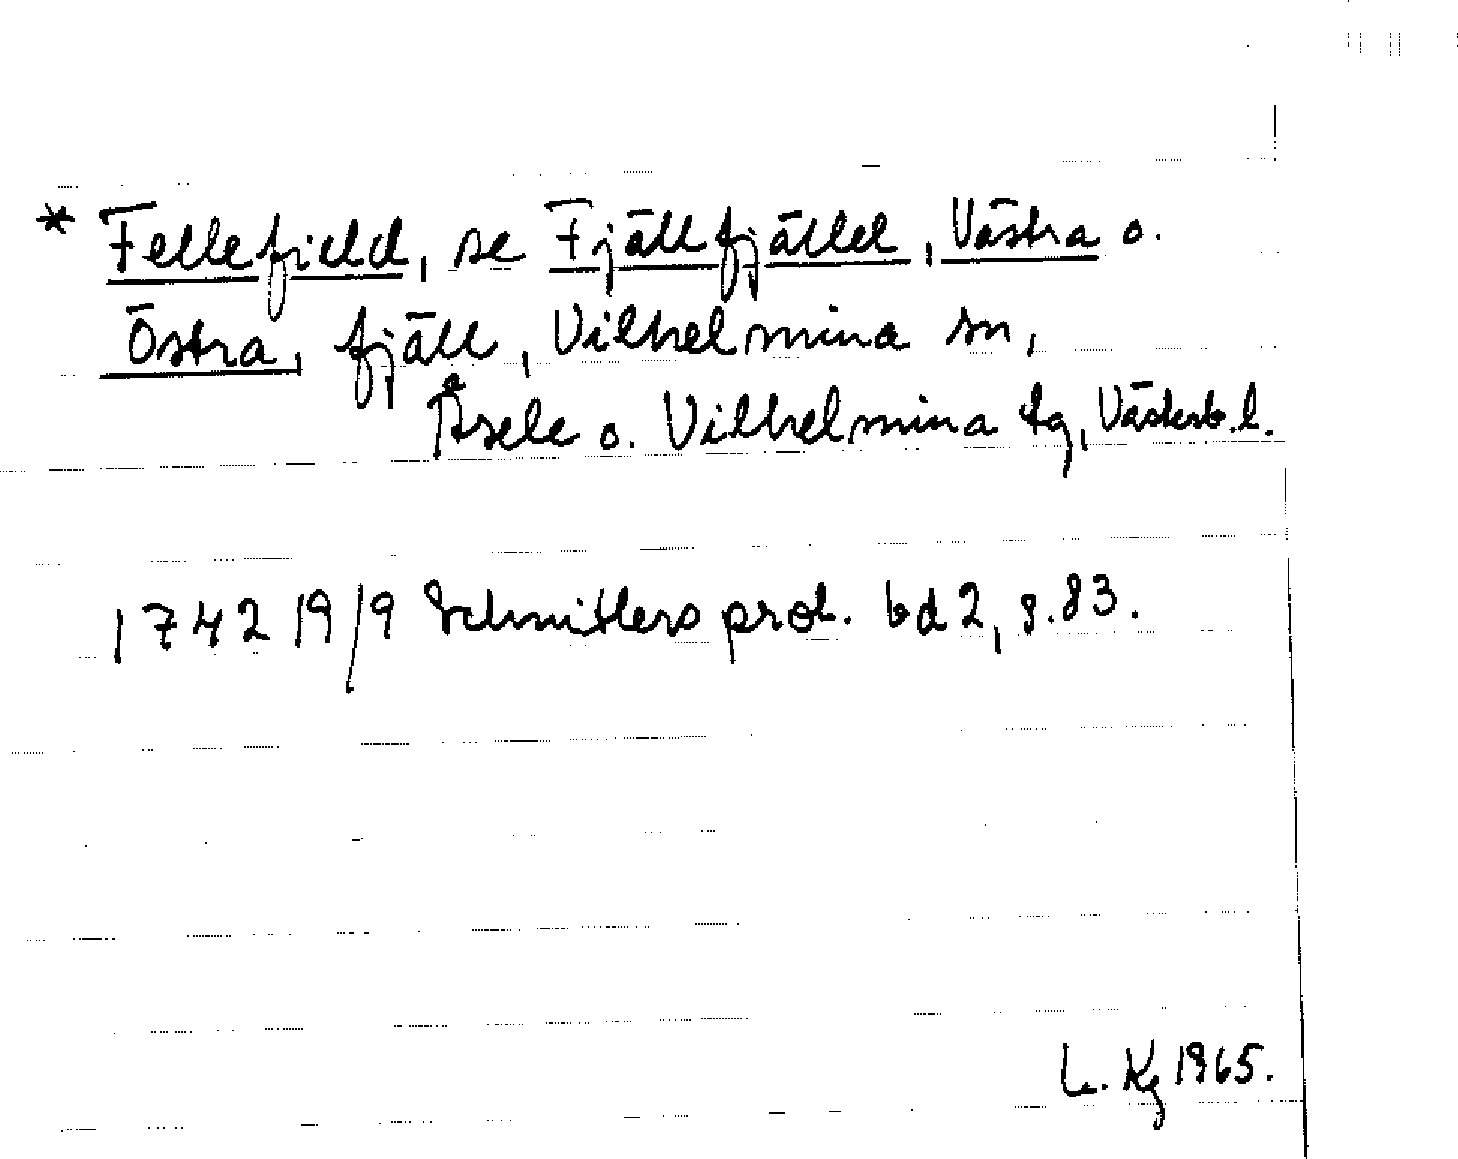 * Fellefield, se Fjällfjället, Västra o.
Östra, fjäll, Vilhelmina sn,
Åsele o. Vilhelmina tg, Västerb. l.
1742 19/9 Schnitlers prot. bd 2, s. 83.
L. Kg 1965.